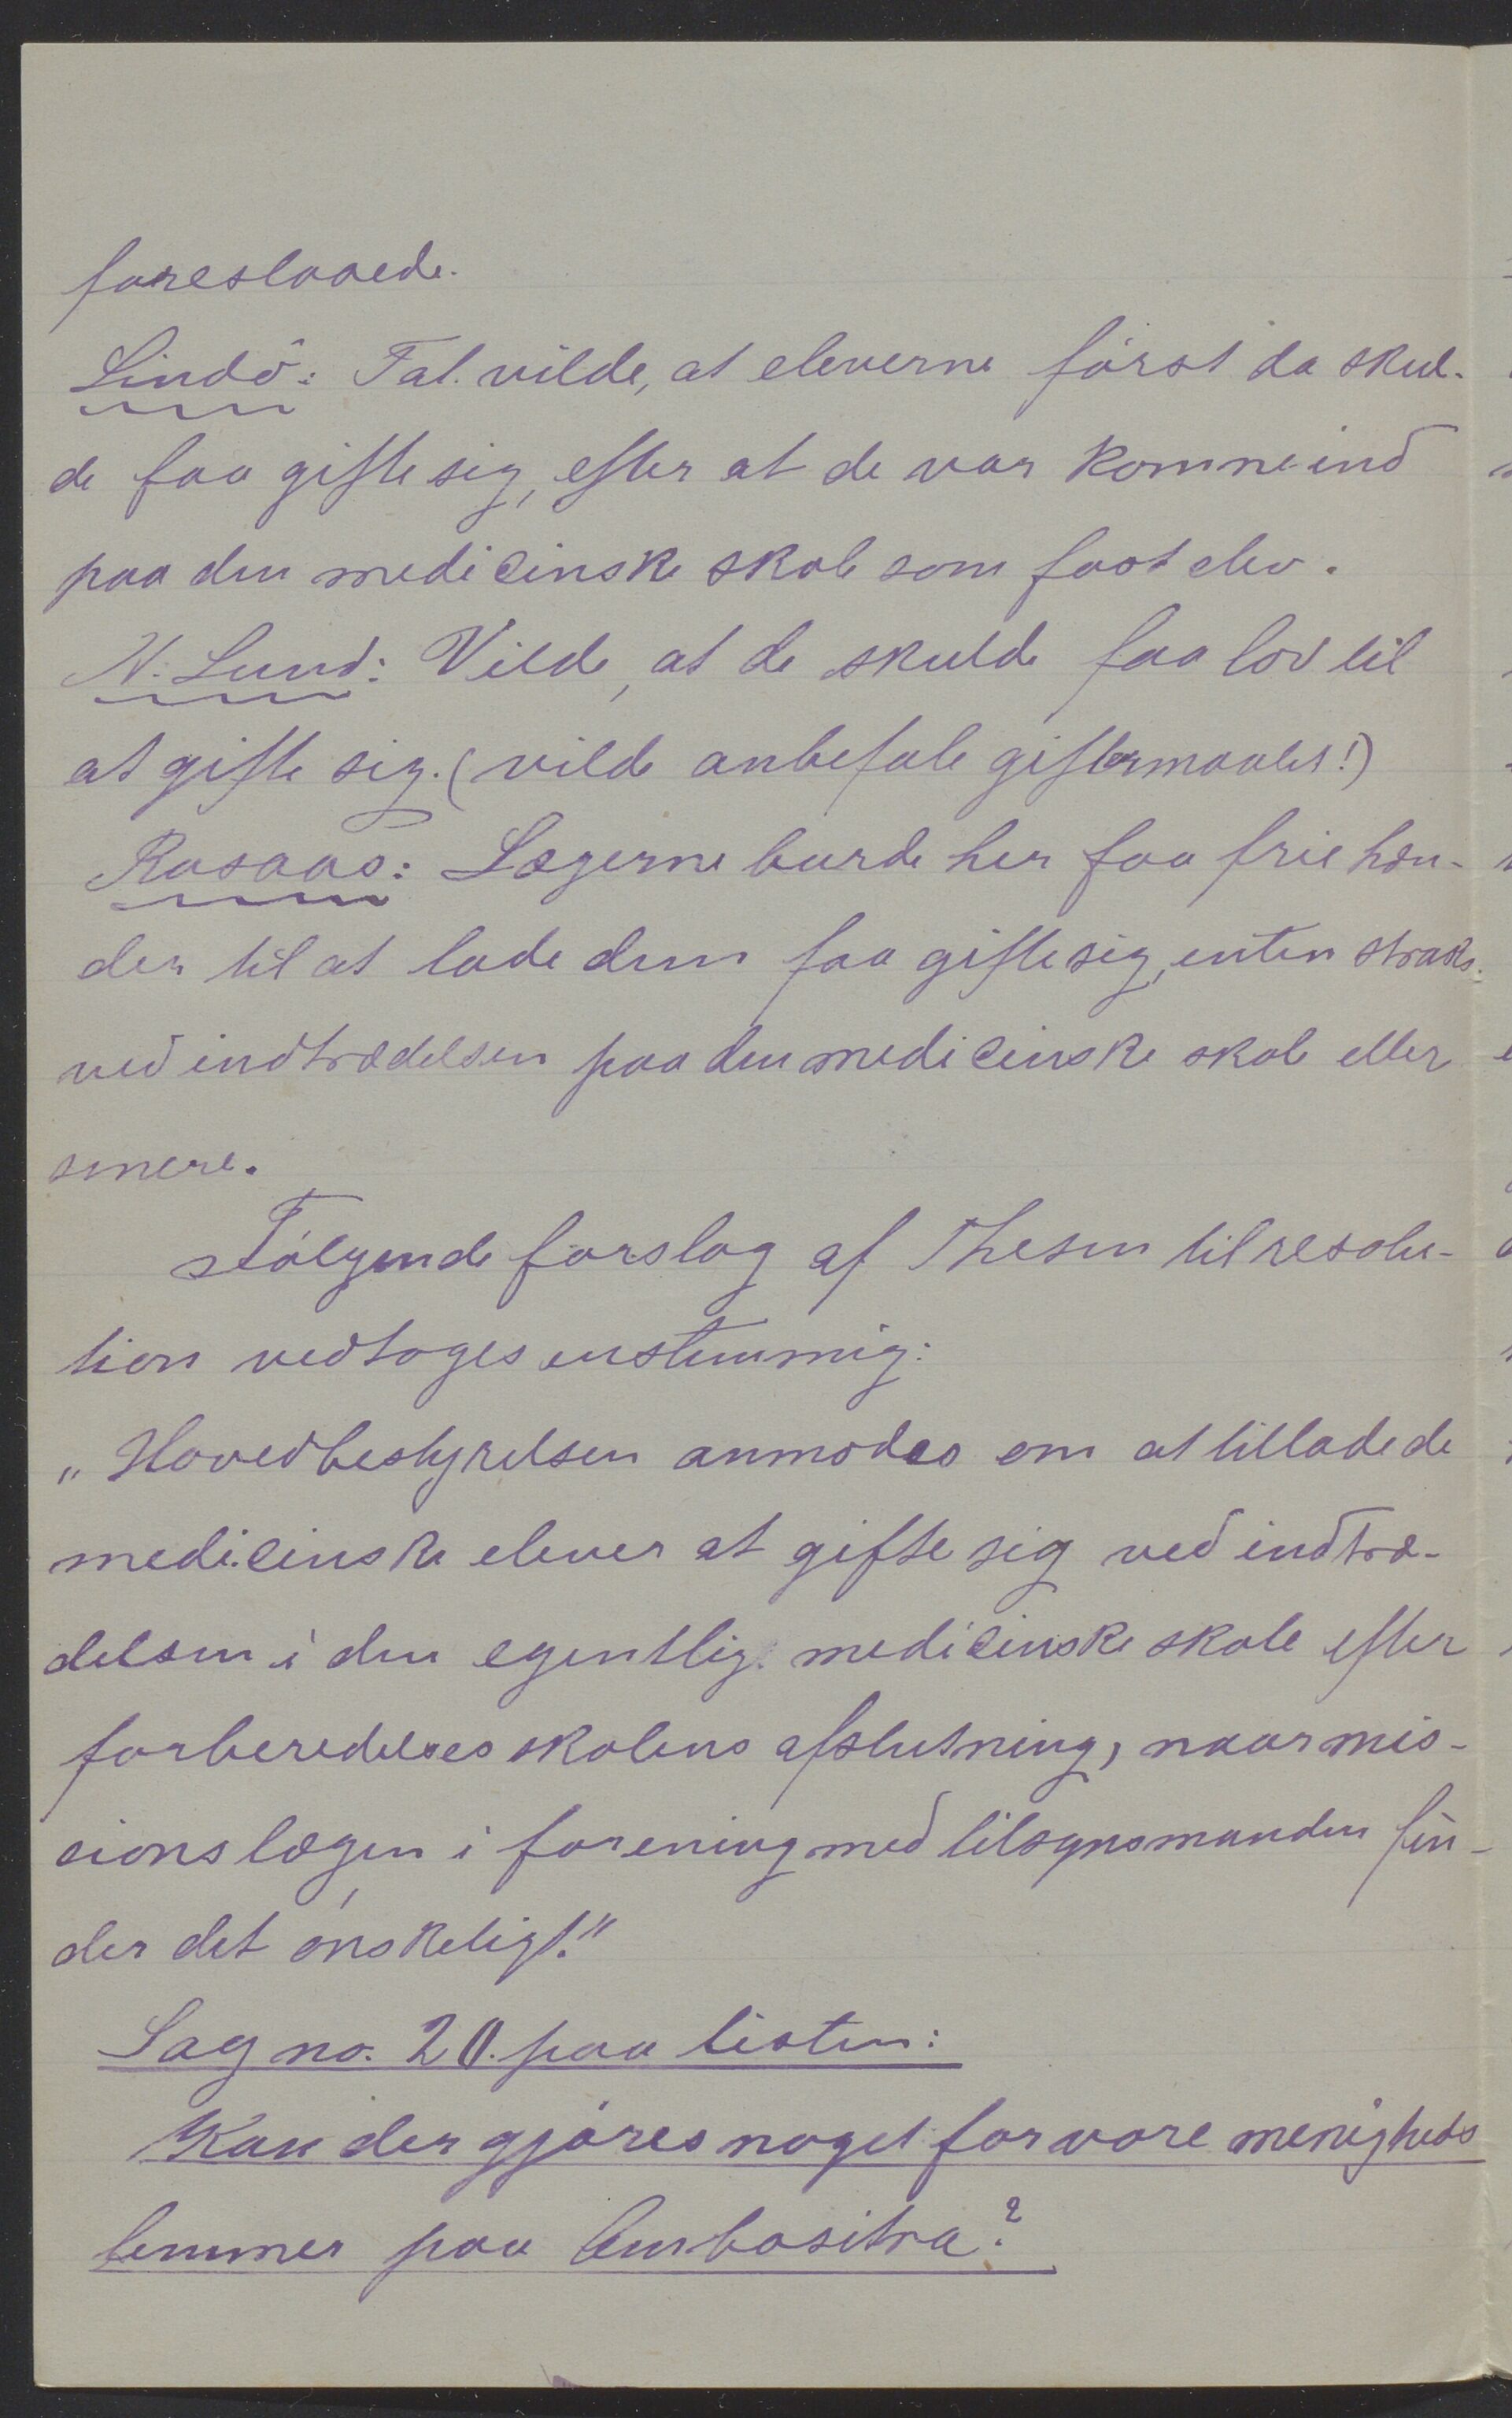 foreslaaede.
Lindö: Tal. vilde, at eleverne först da skul-
de faa gifte sig, efter at de var komne ind
paa den medicinske skole som fast elev.
N. Lund: Vilde, at de skulde faa lov til
at gifte sig. (vilde anbefale giftermaalet!)
Rosaas: Lægerne burde her faa frie hæn-
der til at lade dem faa gifte sig, enten straks
ved indtrædelsen paa den medicinske skole eller
senere.
Følgende forslag af Thesen til resolu-
tion vedtoges enstemmig:
„Hovedbestyrelsen anmodes om at tillade de
medicinske elever at gifte sig ved indtræ-
delsen i den egentlig. medicinske skole efter
forberedelsesskolens afslutning, naar mis-
sionslægen i forening med tilsynsmanden fin-
der det ønskeligt."
Sag no. 20. paa listen:
Kan der gjøres noget for vore menigheds
lemmer paa Ambositra?